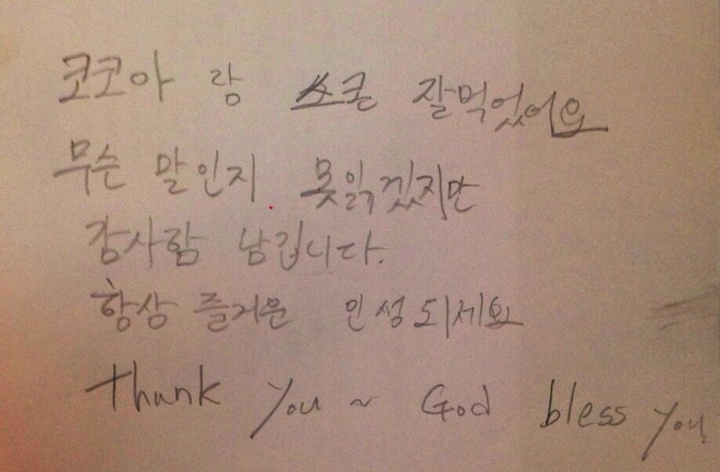 코코아 랑 스콘 잘먹었어요
무슨 말인지 못읽겠지만
감사함 남깁니다.
항상 즐거운 인성되세요
thank you ~ God bless you.